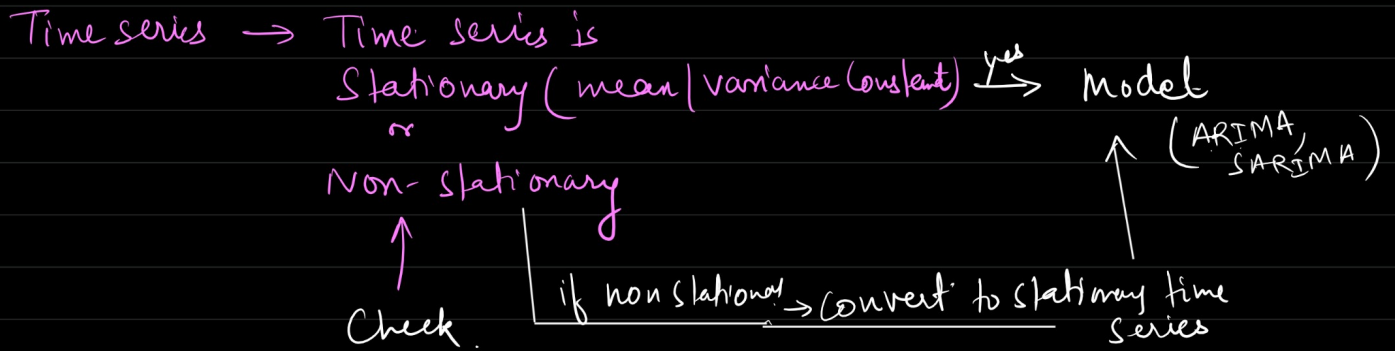 Time series → Time series is
Stationary (mean | variance Constant) yes → Model
or
(ARIMA,
SARIMA)
Non-stationary
if non stationary → convert to stationary time
series
Check.